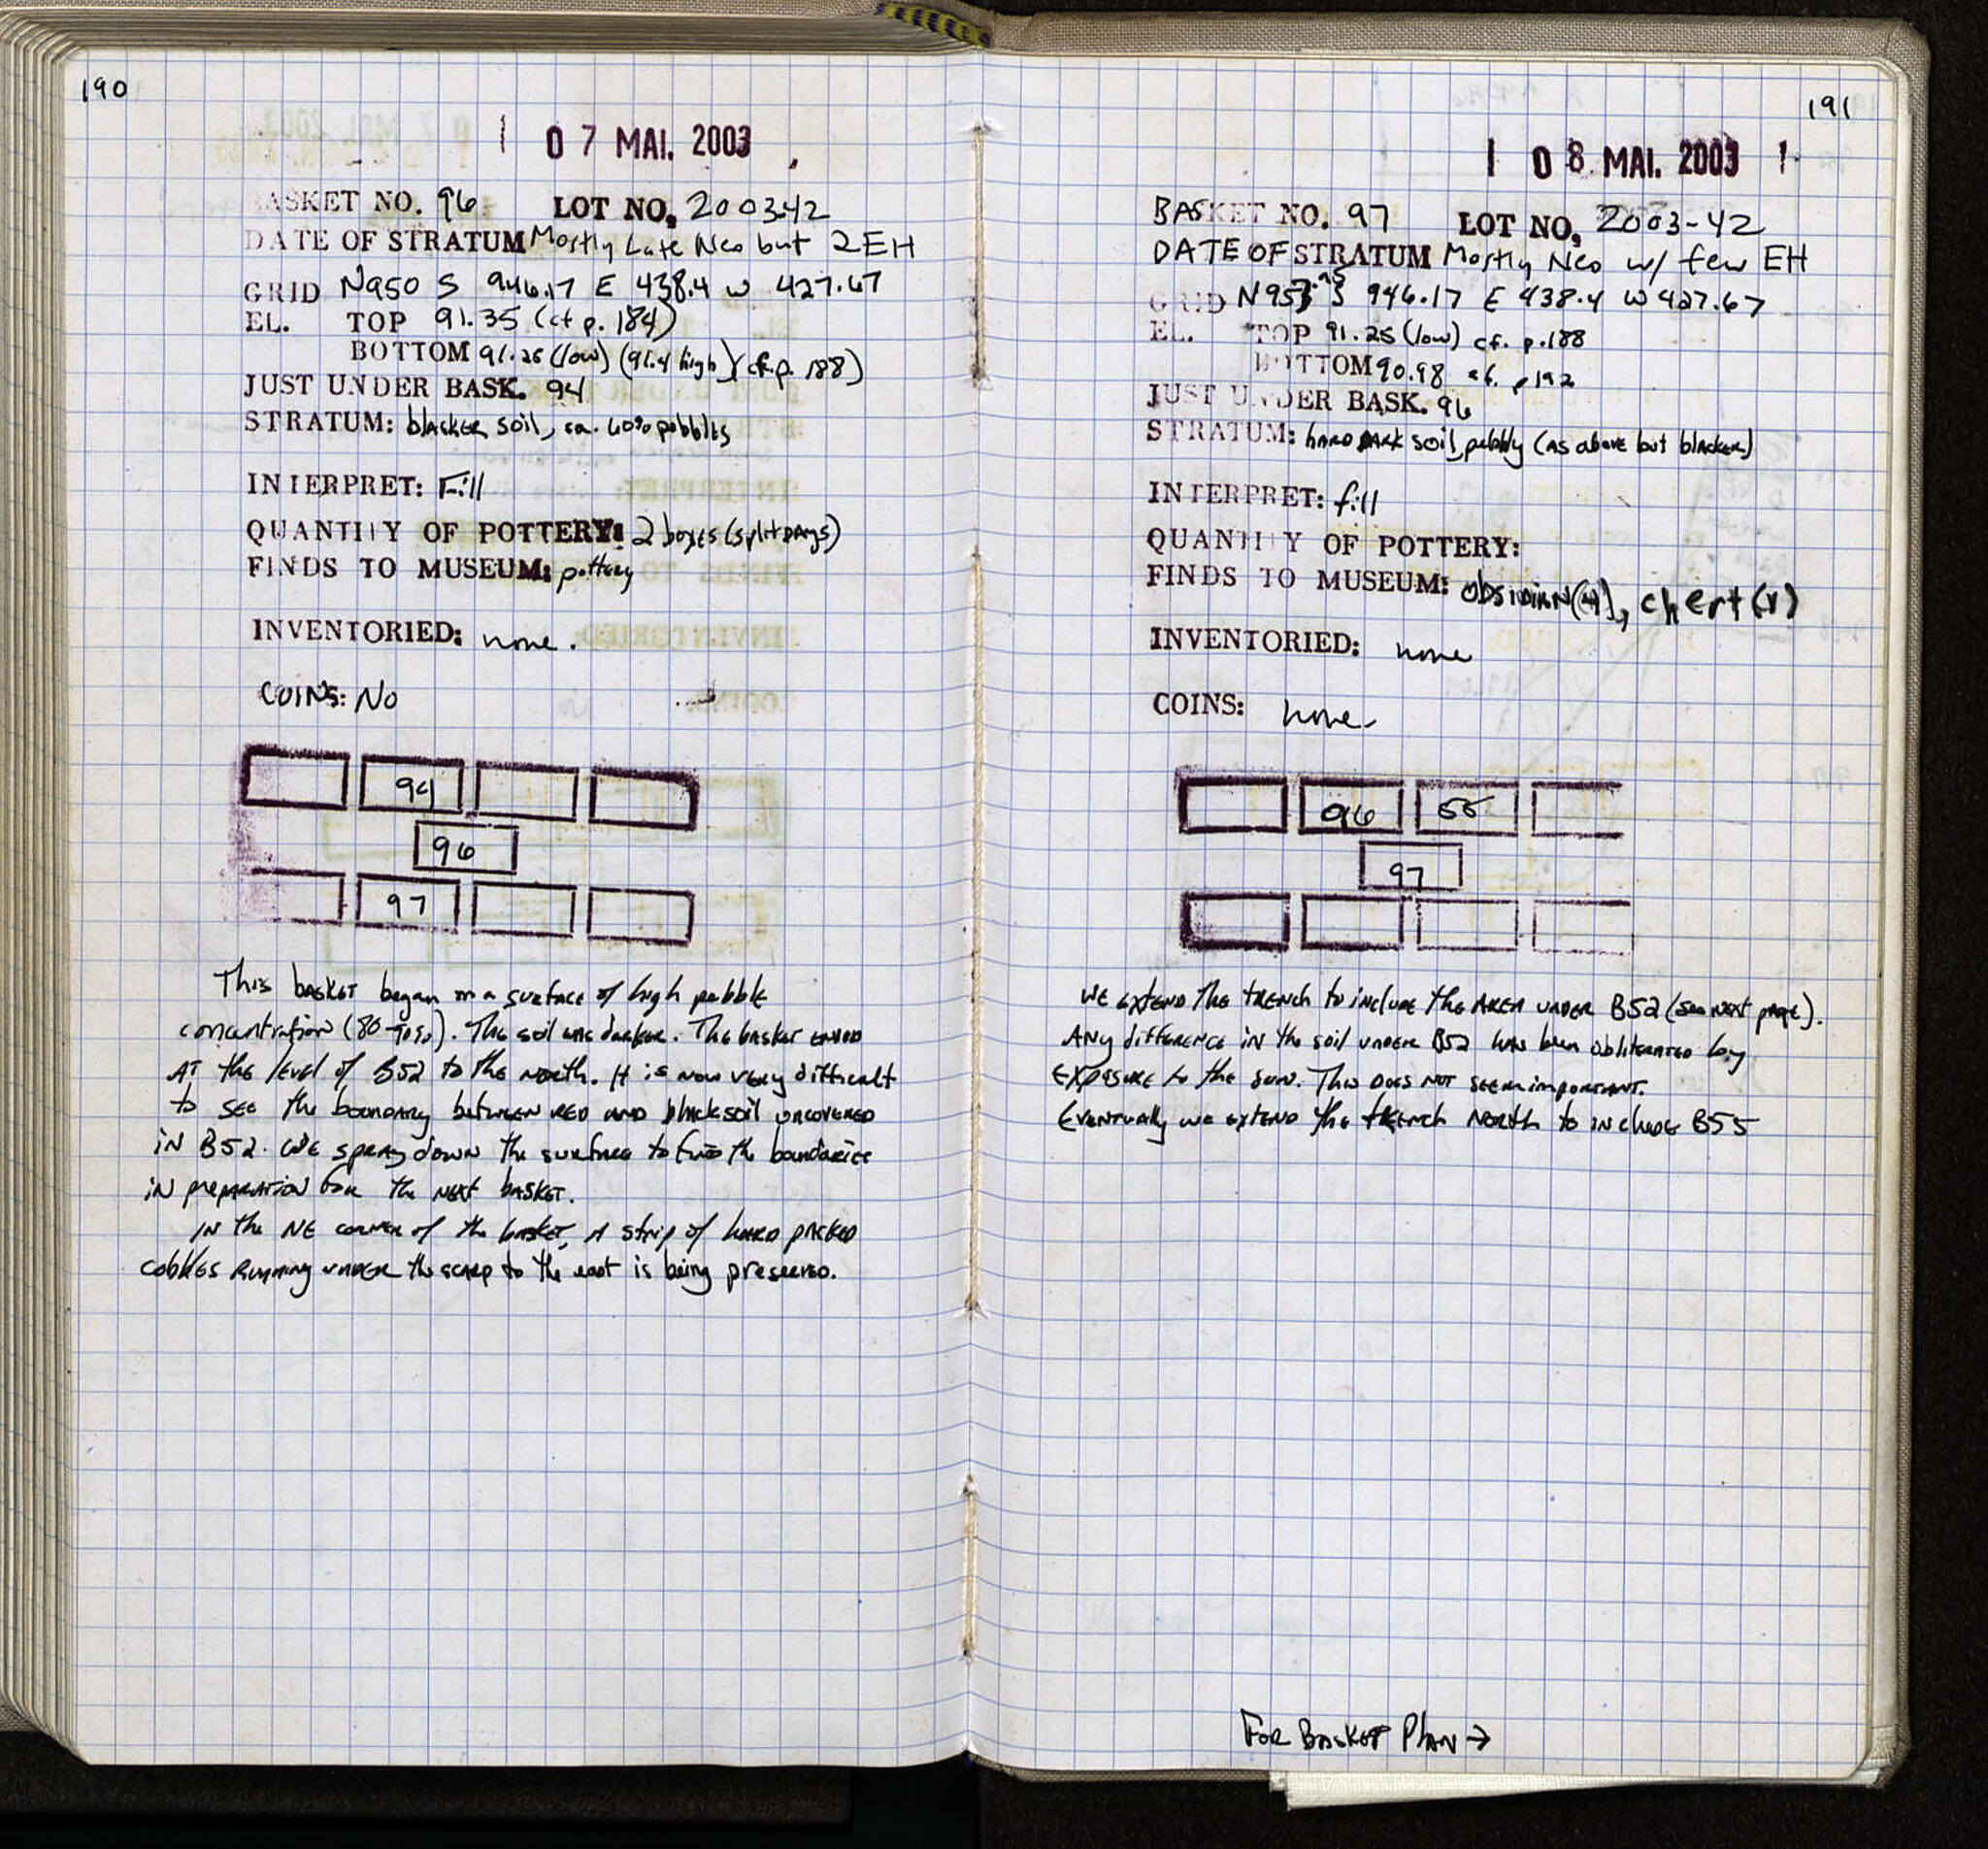 190
07 MAI. 2003
BASKET NO. 96 LOT NO, 2003-42
DATE OF STRATUM Mostly Late Neo but 2EH
GRID N950 S 946.17 E 438.4 W 427.67
EL. TOP 91.35 (cf p. 184)
BOTTOM 91.25 (low) (91.4 high) (cf. p. 188)
JUST UNDER BASK. 94
STRATUM: blacker soil, ca. 60% pebbles
INTERPRET: Fill
QUANTITY OF POTTERY: 2 boxes (split days)
FINDS TO MUSEUM: pottery
INVENTORIED: none.
COINS: No
94
96
97
This basket began on a surface of high pebble
concentration (80-90%). The soil was darker. The basket ended
at the level of B52 to the north. It is now very difficult
to see the boundary between red and black soil uncovered
in B52. We spray down the surface to find the boundaries
in preparation for the next basket.
In the NE corner of the basket, a strip of hard packed
cobbles running under the scarp to the east is being preserved.
191
08 MAI. 2003
BASKET NO. 97 LOT NO, 2003-42
DATE OF STRATUM Mostly Neo w/ few EH
GRID S 946.17 E 438.4 W 427.67
EL. TOP 91.25 (low) cf. p.188
BOTTOM 90.98 cf. p192
JUST UNDER BASK. 96
STRATUM: hard dark soil, pebbly (as above but blacker)
INTERPRET: fill
QUANTITY OF POTTERY:
FINDS TO MUSEUM: obsidian(4), chert(1)
INVENTORIED: none
COINS: none
96 55
97
We extend the trench to include the area under B52 (see next page).
Any difference in the soil under B52 has been obliterated by
exposure to the sun. This does not seem important.
Eventually we extend the trench north to include B55
For Basket Plan →